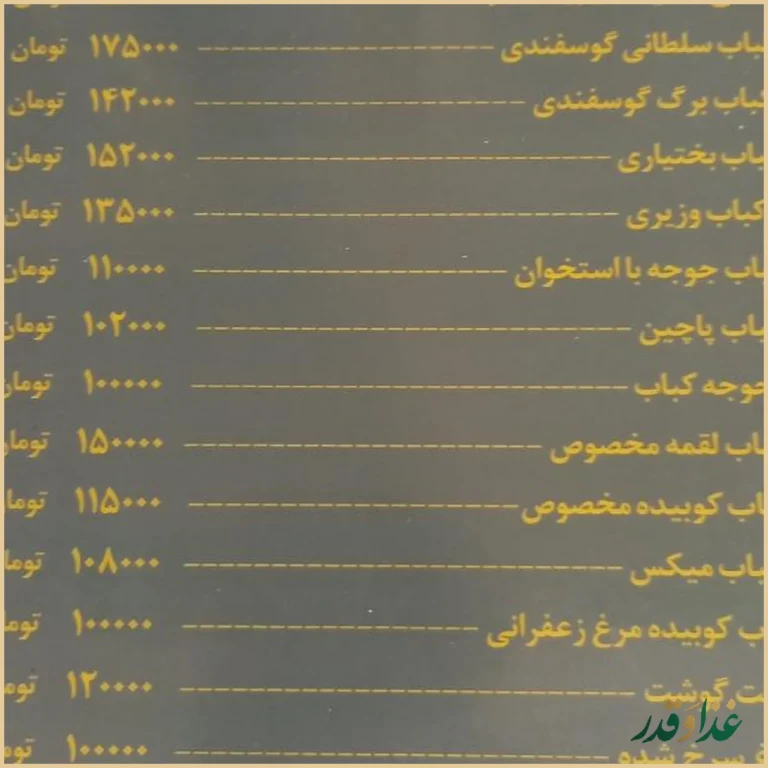 کباب سلطانی گوسفندی ۱۷۵۰۰۰ تومان
کباب برگ گوسفندی ۱۴۲۰۰۰ تومان
کباب بختیاری ۱۵۲۰۰۰ تومان
کباب وزیری ۱۳۵۰۰۰ تومان
باب جوجه با استخوان ۱۱۰۰۰۰ تومان
باب پاچین ۱۰۲۰۰۰ تومان
جوجه کباب ۱۰۰۰۰۰ تومان
باب لقمه مخصوص ۱۵۰۰۰۰ تومان
اب کوبیده مخصوص ۱۱۵۰۰۰ توما
باب میکس ۱۰۸۰۰۰ توما
ب کوبیده مرغ زعفرانی ۱۰۰۰۰۰ توما
گوشت ۱۲۰۰۰۰ توم
سرخ شده ۱۰۰۰۰۰ تو
غذا و قدر